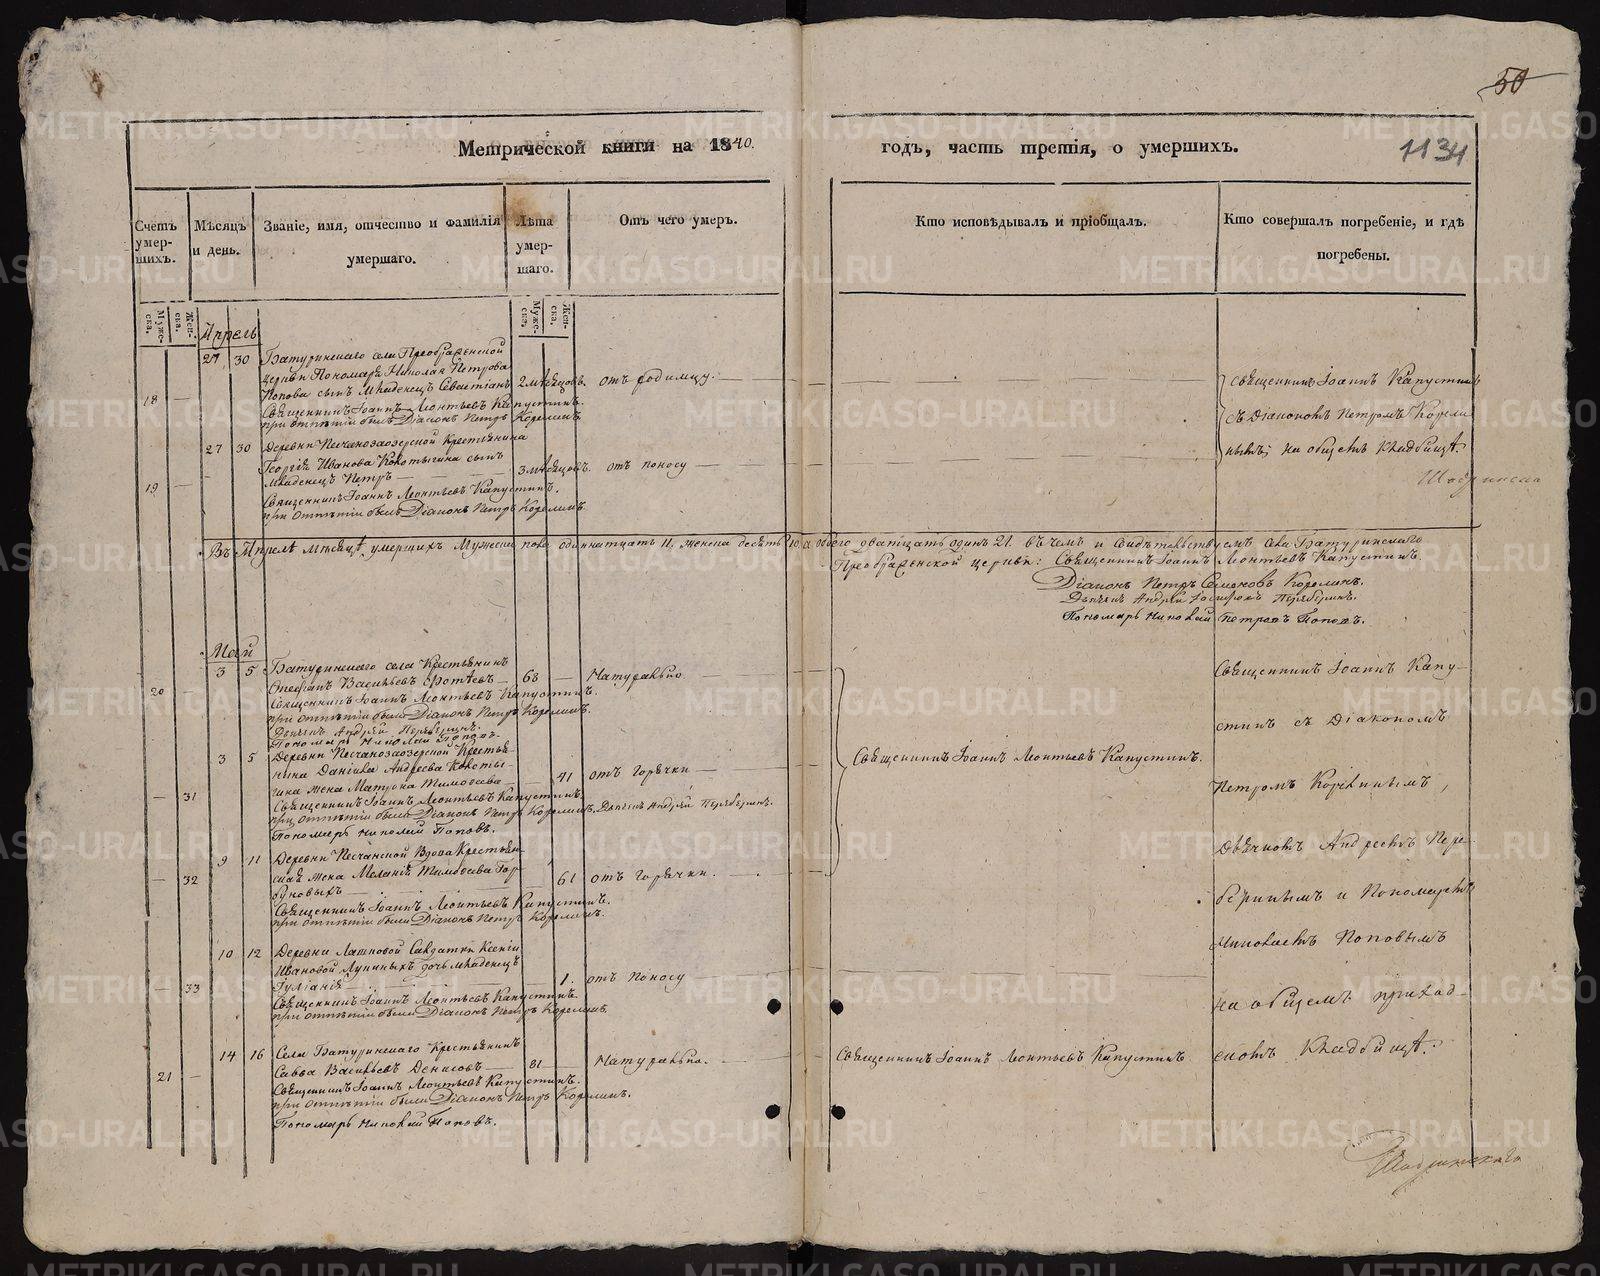 50
1134
Метрической книги на 1840.
годъ, часть третія, о умершихъ.
Счетъ умер-шихъ.
Мѣсяцъ и день.
Званіе, имя, отчество и фамилія умершаго.
Лѣта умер-шаго.
Отъ чего умеръ.
Кто исповѣдывалъ и пріобщалъ.
Кто совершалъ погребеніе, и гдѣ погребены.
Муже-ска.
Жен-ска.
Муже-ска.
Жен-ска.
Апрель
27 30 Батуринскаго села Преображенской
церкви Пономаря Николая Петрова
18 — Попова сынъ младенецъ Севастіанъ 2 мѣсяцовъ отъ родимцу.
Священникъ Іоаннъ Леонтьевъ Капустинъ.
при отпѣтіи былъ Діаконъ Петръ Корелинъ.
27 30 Деревни Песчанозаозерской Крестьянина
Георгія Иванова Кокотыгина сынъ
19 — младенецъ Петръ — 3 мѣсяцовъ. отъ поносу
Священникъ Іоаннъ Леонтьевъ Капустинъ.
при отпѣтіи былъ Діаконъ Петръ Корелинъ.
Священникъ Іоаннъ Капустинъ
съ Діакономъ Петромъ Корели
нымъ; на общемъ кладбищѣ.
Въ Апрелѣ мѣсяцѣ умершихъ мужеска пола одиннатцать 11, женска десять 10, а обоего дватцать одинъ 21. въ чемъ и свидѣтельствуемъ села Батуринскаго
Преображенской церкви: Священникъ Іоаннъ Леонтьевъ Капустинъ
Діаконъ Петръ Семеновъ Корелинъ.
Дьячекъ Андрей
Пономарь Николай Петровъ Поповъ.
Май
3 5 Батуринскаго села Крестьянинъ
20 — Васильевъ — 68 — Натурально.
Священникъ Іоаннъ Леонтьевъ Капустинъ.
при отпѣтіи были Діаконъ Петръ Корелинъ.
Дьячекъ Андрей
Пономарь Николай Поповъ.
3 5 Деревни Песчанозаозерской Крестья
нина Даніила Андреева Кокоты
— 31 гина жена Матрона Тимофеева — 41 отъ горячки
Священникъ Іоаннъ Леонтьевъ Капустинъ.
при отпѣтіи были Діаконъ Петръ Корелинъ. Дьячекъ Андрей
Пономарь Николай Поповъ.
9 11 Деревни Песчанской Вдова Крестьян
— 32 ская жена Меланія Тимофеева Гор
буновыхъ — 61 отъ горячки.
Священникъ Іоаннъ Леонтьевъ Капустинъ.
при отпѣтіи были Діаконъ Петръ Корелинъ.
Священникъ Іоаннъ Леонтьевъ Капустинъ.
10 12 Деревни Солдатки Ксеніи
Ивановой дочь младенецъ
— 33 Іуліанія — 1. отъ поносу
Священникъ Іоаннъ Леонтьевъ Капустинъ
при отпѣтіи были Діаконъ Петръ Корелинъ.
14 16 Села Батуринскаго Крестьянинъ
21 — Савва Васильевъ Денисовъ — 81 — Натурально.
Священникъ Іоаннъ Леонтьевъ Капустинъ.
при отпѣтіи были Діаконъ Петръ Корелинъ.
Пономарь Николай Поповъ.
Священникъ Іоаннъ Леонтьевъ Капустинъ
Священникъ Іоаннъ Капу-
стинъ съ Діакономъ
Петромъ Корелинымъ,
Дьячкомъ Андреемъ Пере-
и Пономаремъ
Николаемъ Поповымъ
на общемъ приход-
скомъ кладбищѣ.
METRIKI.GASO-URAL.RU